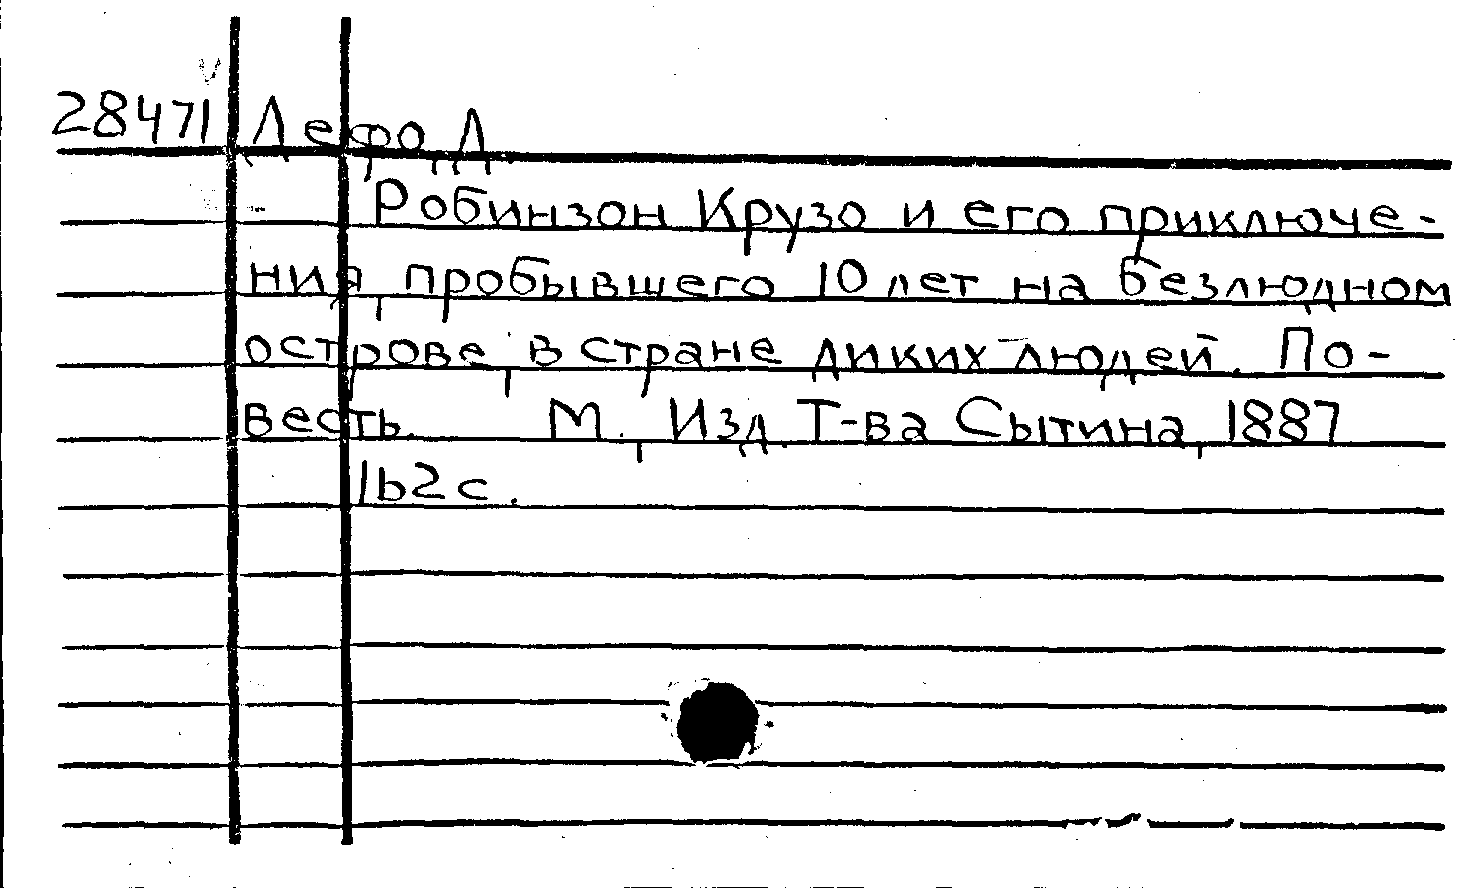 28471 Дефо, Д.
Робинзон Крузо и его приключе-
ния, пробывшего 10 лет на безлюдном
острове, в стране диких людей. По-
весть. М., Изд. Т-ва Сытина, 1887
162 с.